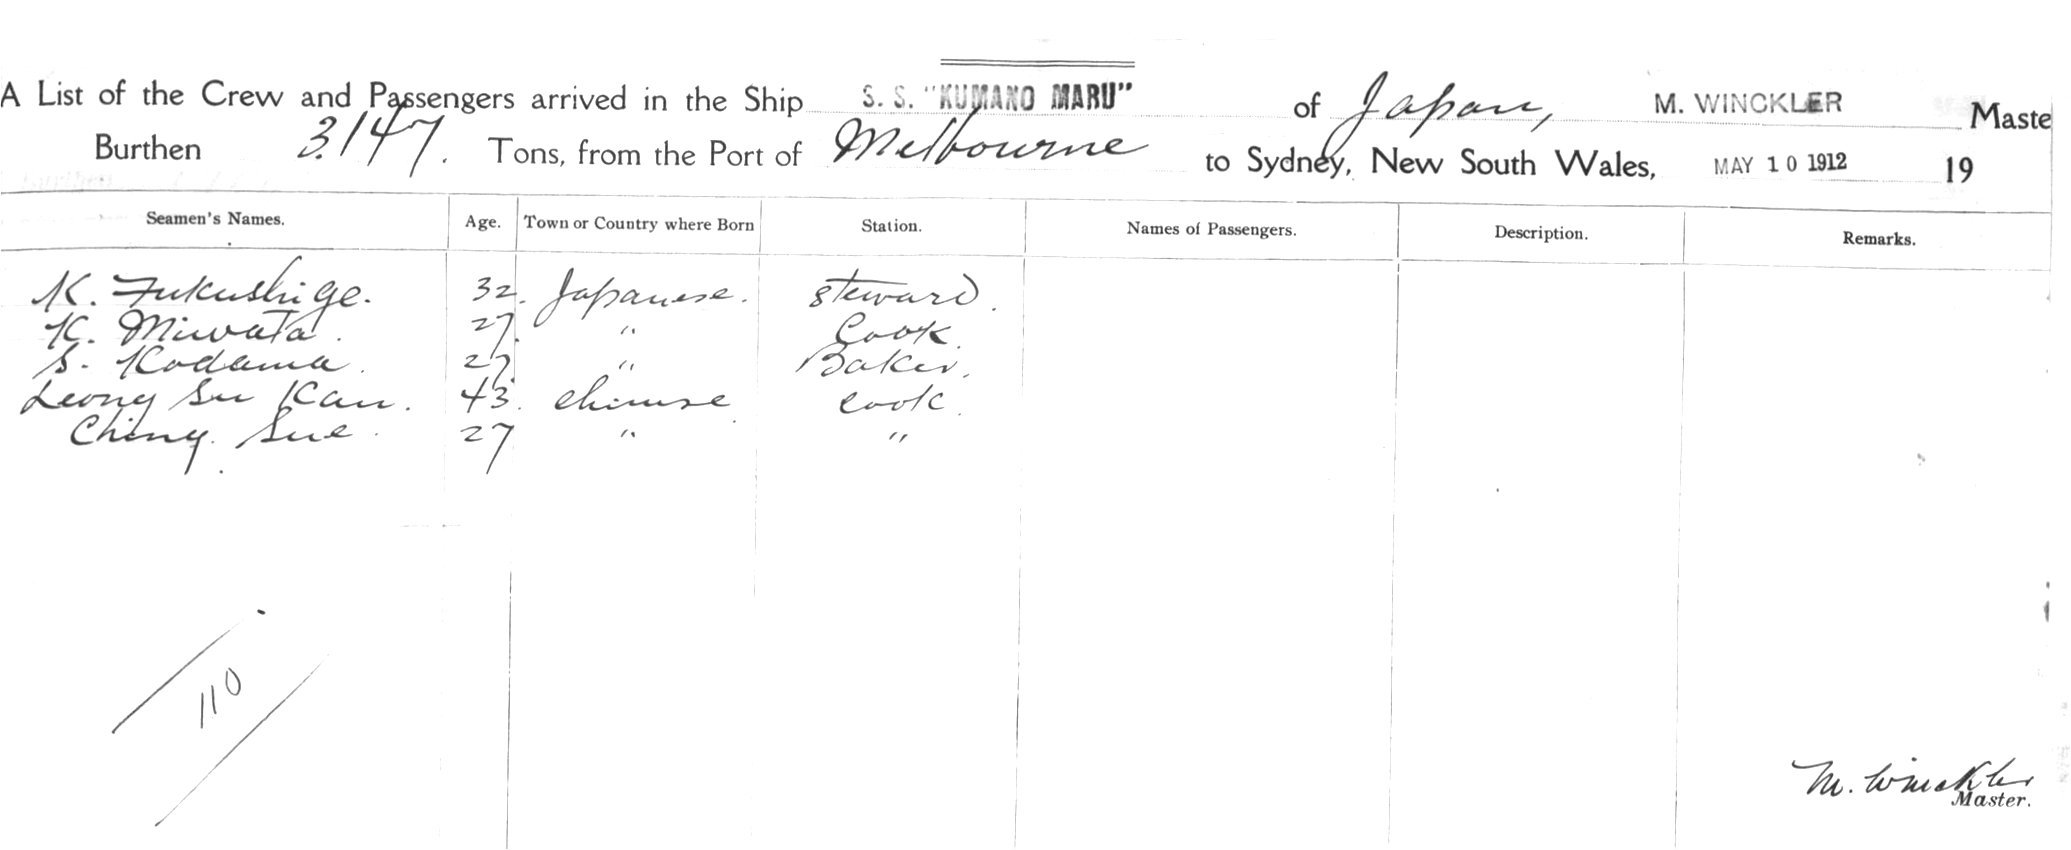 A List of the Crew and Passengers arrived in the Ship S. S. "KUMANO MARU" of Japan, M. WINCKLER Maste
Burthen 3.147. Tons, from the Port of Melbourne to Sydney, New South Wales, MAY 10 1912 19
Seamen's Names. Age. Town or Country where Born Station. Names of Passengers. Description. Remarks.
K. Fukushige. 32. Japanese. Steward.
K. Miwata. 27. " Cook.
S. Kodama. 27. " Baker.
Leong Su Kan. 43. Chinese cook.
Ching. Sue. 27 " "
110
M. Winckler
Master.